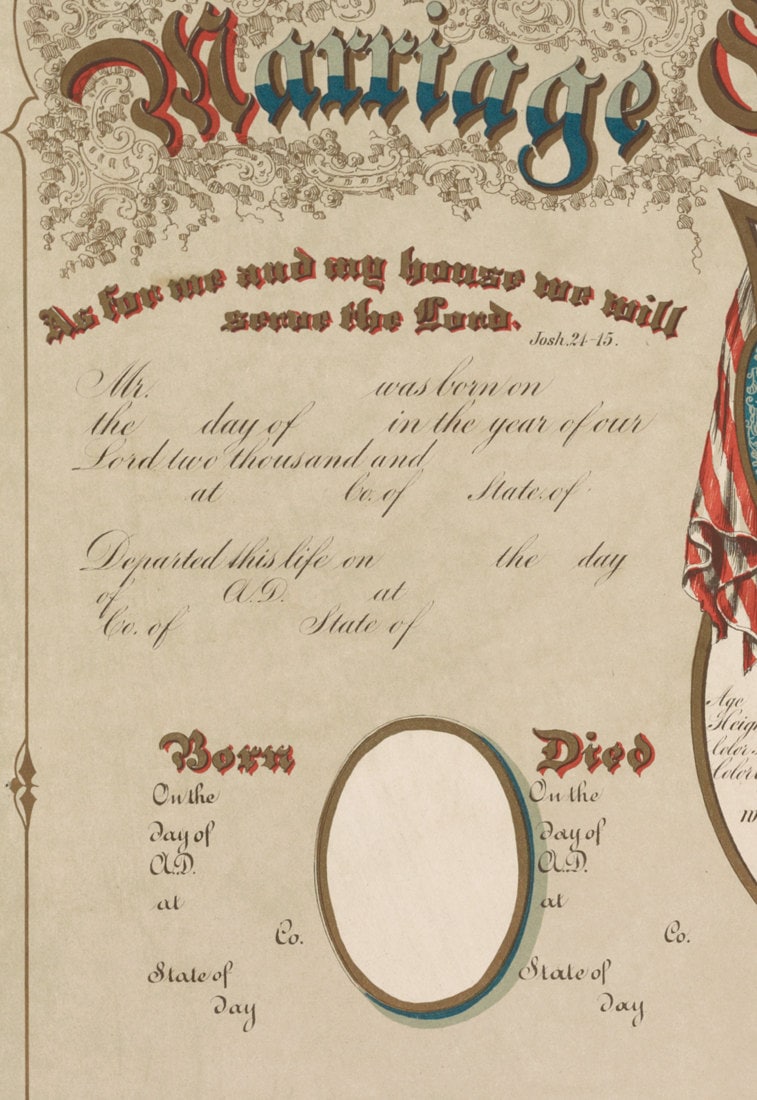 Marriage
As for me and my house we will
serve the Lord.
Josh. 24-15.
Mr. was born on
the day of in the year of our
Lord two thousand and
at Co. of State of
Departed this life on the day
of A.D. at
Co. of State of
Born
On the
day of
A.D.
at
Co.
State of
day
Died
On the
day of
A.D.
at
Co.
State of
day
Age